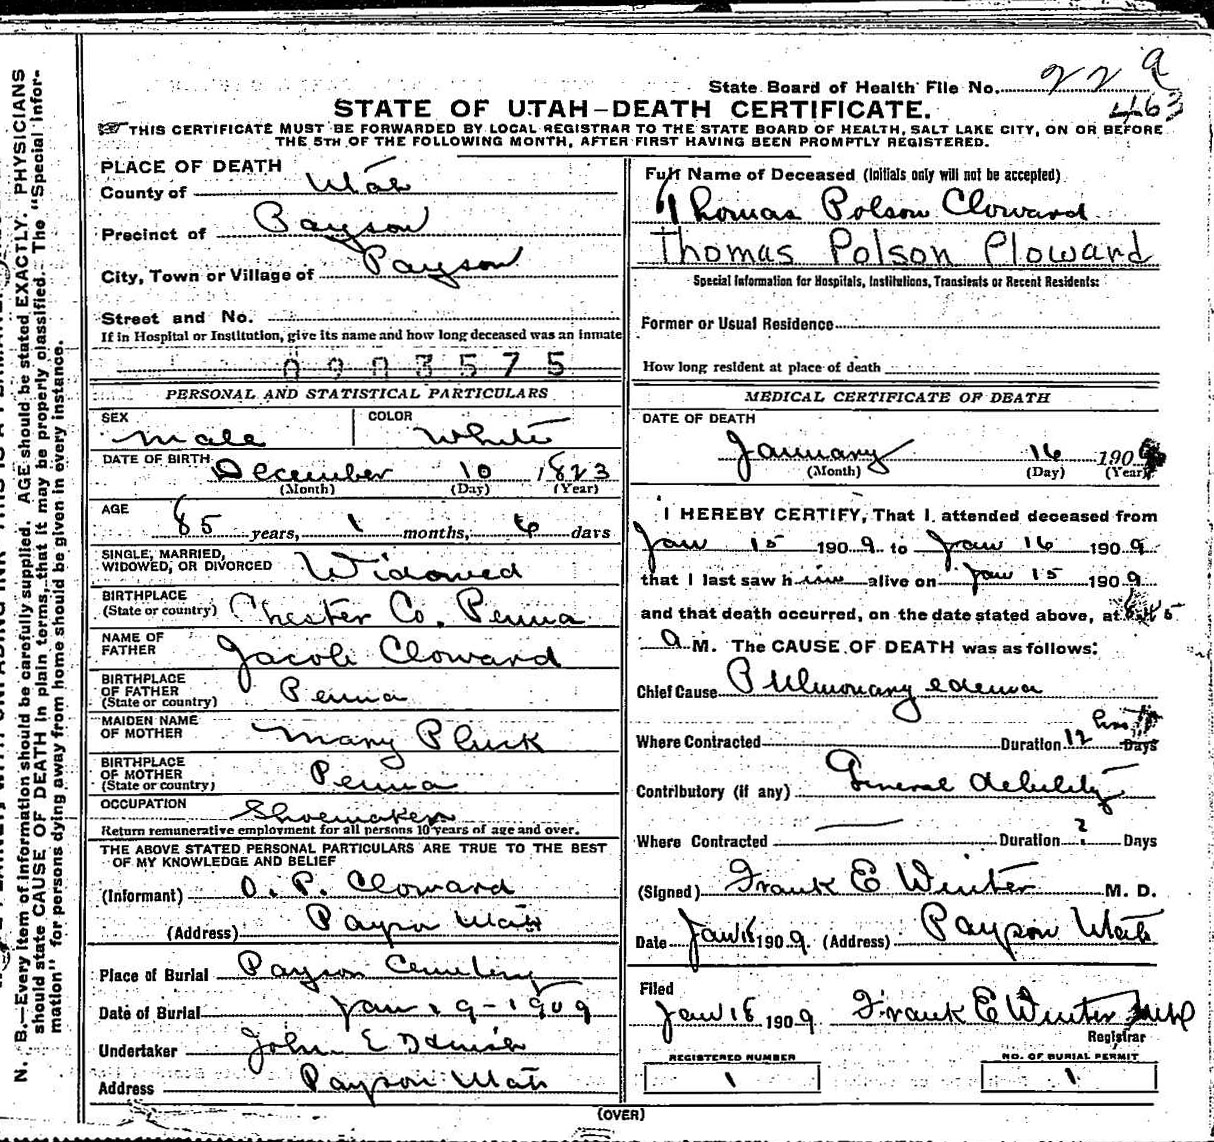 State Board of Health File No. 229
463
STATE OF UTAH—DEATH CERTIFICATE.
THIS CERTIFICATE MUST BE FORWARDED BY LOCAL REGISTRAR TO THE STATE BOARD OF HEALTH, SALT LAKE CITY, ON OR BEFORE
THE 5TH OF THE FOLLOWING MONTH, AFTER FIRST HAVING BEEN PROMPTLY REGISTERED.
PLACE OF DEATH
County of Utah
Precinct of Payson
City, Town or Village of Payson
Street and No.
If in Hospital or Institution, give its name and how long deceased was an inmate
0903575
PERSONAL AND STATISTICAL PARTICULARS
SEX COLOR
Male White
DATE OF BIRTH
December 10 1823
(Month) (Day) (Year)
AGE
85 years, 1 months, 6 days
SINGLE, MARRIED,
WIDOWED, OR DIVORCED Widowed
BIRTHPLACE
(State or country) Chester Co. Penna
NAME OF
FATHER Jacob Cloward
BIRTHPLACE
OF FATHER
(State or country) Penna
MAIDEN NAME
OF MOTHER Mary Pluck
BIRTHPLACE
OF MOTHER
(State or country) Penna
OCCUPATION Shoemaker
Return remunerative employment for all persons 10 years of age and over.
THE ABOVE STATED PERSONAL PARTICULARS ARE TRUE TO THE BEST
OF MY KNOWLEDGE AND BELIEF
(Informant) O. P. Cloward
(Address) Payson Utah
Place of Burial Payson Cemetery
Date of Burial Jan 19-1909
Undertaker John E
Address Payson Utah
Full Name of Deceased (Initials only will not be accepted)
Thomas Polson Cloward
Thomas Polson Cloward
Special Information for Hospitals, Institutions, Transients or Recent Residents:
Former or Usual Residence
How long resident at place of death
MEDICAL CERTIFICATE OF DEATH
DATE OF DEATH
January 16 1909
(Month) (Day) (Year)
I HEREBY CERTIFY, That I attended deceased from
Jan 15 1909 to Jan 16 1909
that I last saw him alive on Jan 15 1909
and that death occurred, on the date stated above, at 8.45
a M. The CAUSE OF DEATH was as follows:
Chief Cause Pulmonary edema
Where Contracted Duration 12 hrs Days
Contributory (if any) General debility
Where Contracted Duration ? Days
(Signed) Frank E Winter M. D.
Date Jan 18 1909 (Address) Payson Utah
Filed
Jan 18 1909 Frank E Winter
Registrar
REGISTERED NUMBER NO. OF BURIAL PERMIT
1 1
(OVER)
N. B.—Every item of information should be carefully supplied. AGE should be stated EXACTLY. PHYSICIANS
should state CAUSE OF DEATH in plain terms, that it may be properly classified. The "Special Infor-
mation" for persons dying away from home should be given in every instance.